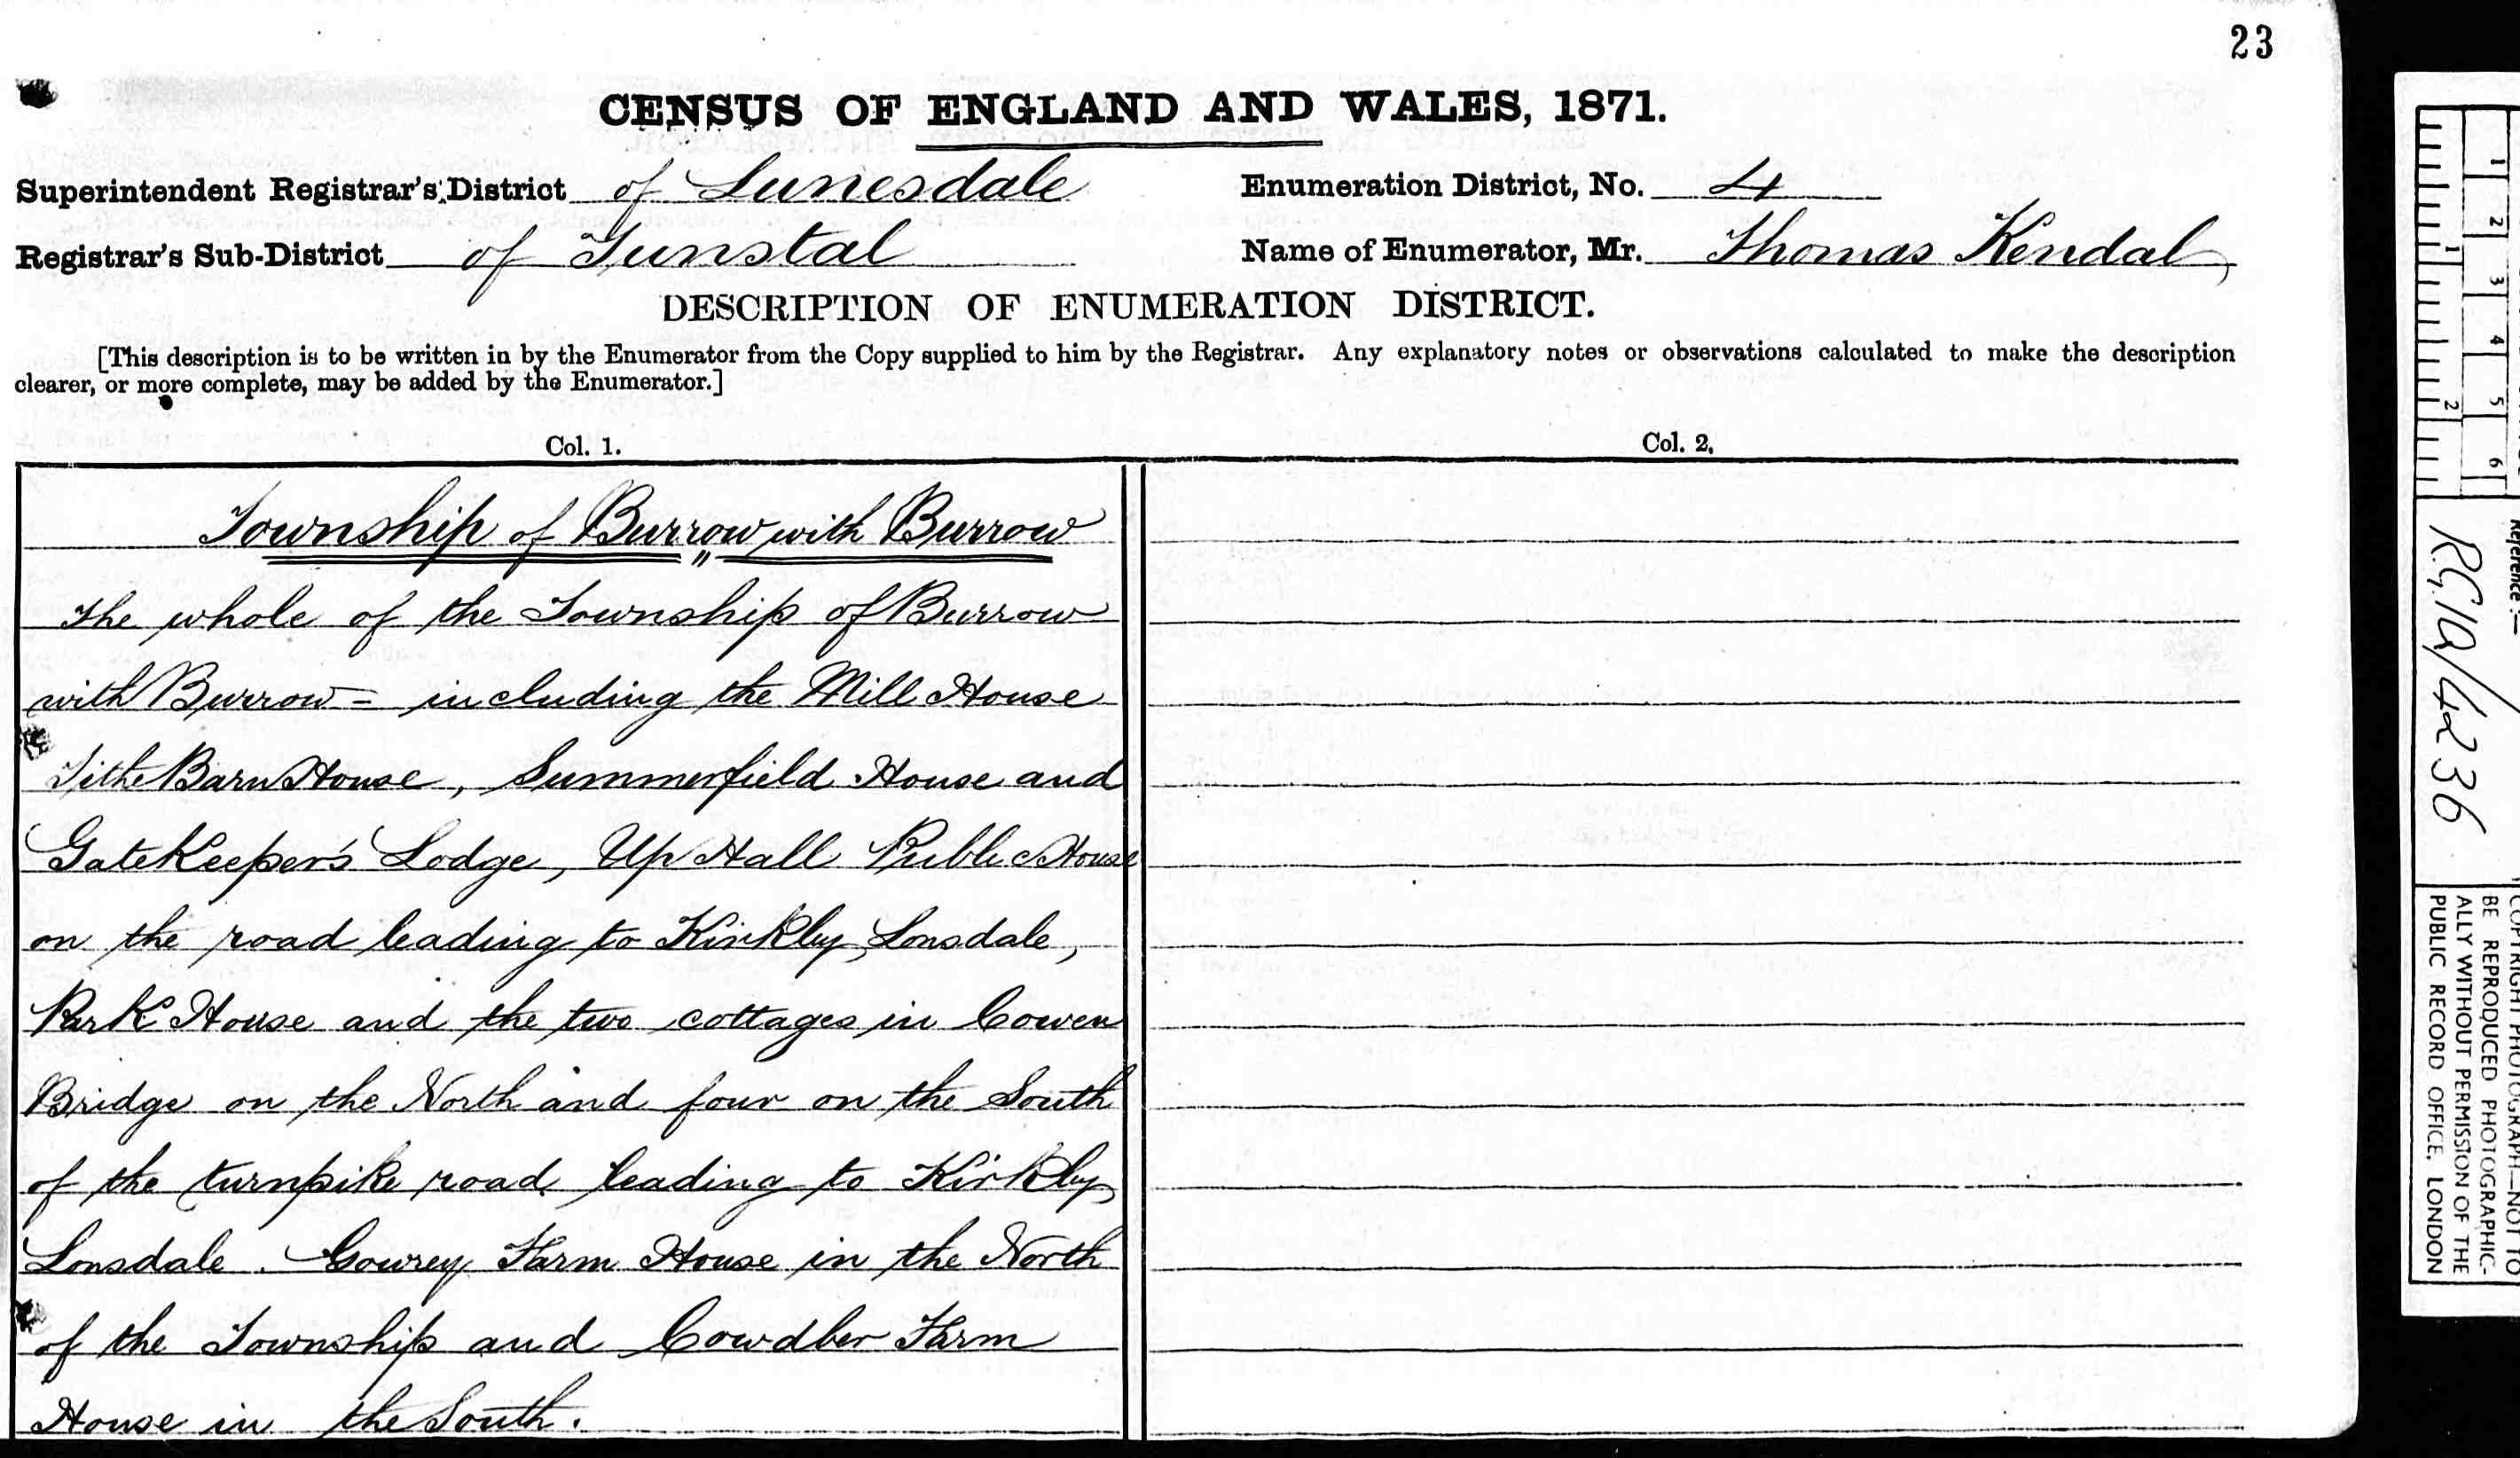 23
CENSUS OF ENGLAND AND WALES, 1871.
Superintendent Registrar's District of Lunesdale
Enumeration District, No. 4
Registrar's Sub-District of Tunstal
Name of Enumerator, Mr. Thomas Kendal
DESCRIPTION OF ENUMERATION DISTRICT.
[This description is to be written in by the Enumerator from the Copy supplied to him by the Registrar. Any explanatory notes or observations calculated to make the description
clearer, or more complete, may be added by the Enumerator.]
Col. 1.
Township of Burrow with Burrow
The whole of the Township of Burrow
with Burrow - including the Mill House
Tithe Barn House, Summerfield House and
GateKeeper's Lodge, Up Hall Public House
on the road leading to Kirkby Lonsdale,
Park House and the two cottages in Cowen
Bridge on the North and four on the South
of the turnpike road leading to Kirkby
Lonsdale. Gowrey Farm House in the North
of the Township and Cowdber Farm
House in the South.
Col. 2.
1 2 3 4 5 6
1 2
Reference:-
RG 10/4236
COPYRIGHT PHOTOGRAPH—NOT TO
BE REPRODUCED PHOTOGRAPHIC-
ALLY WITHOUT PERMISSION OF THE
PUBLIC RECORD OFFICE, LONDON